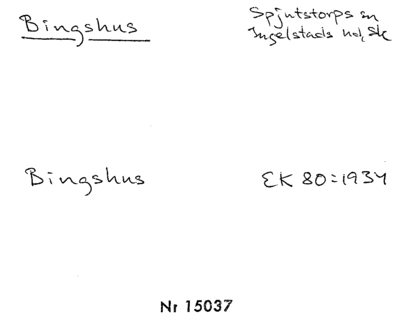 Bingshus
Spjutstorps sn
Ingelstads hd, Sk
Bingshus
EK 80:1934
Nr 15037